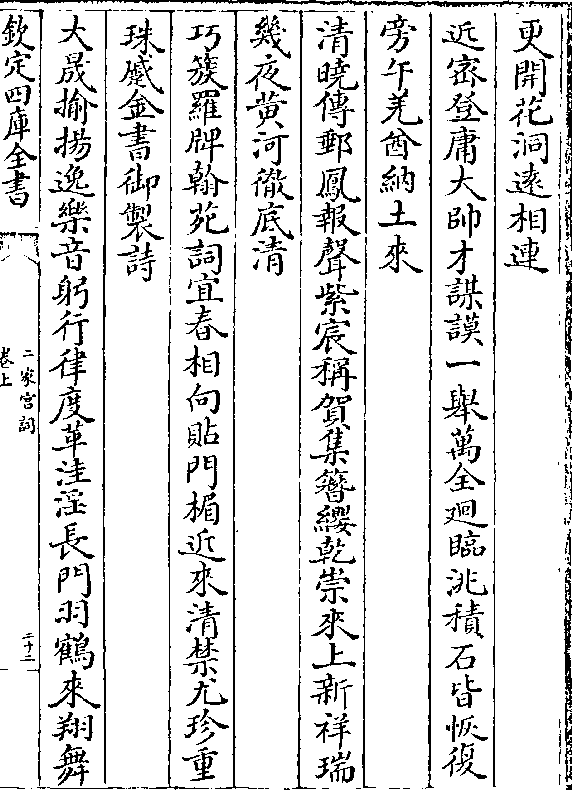 更開花洞遠相連
近密登庸大帥才謀謨一舉萬全廻臨洮積石皆恢復
旁午羌酋納土來
清曉傳郵鳳報聲紫宸稱賀集簪纓乾崇來上新祥瑞
幾夜黄河徹底清
巧簇羅牌翰苑詞宜春相向貼門楣近來清禁尤珍重
珠蹙金書御製詩
大晟揄揚逸樂音躬行律度革洼淫長門羽鶴來翔舞
欽定四庫全書
二家宫詞
卷上
二十二